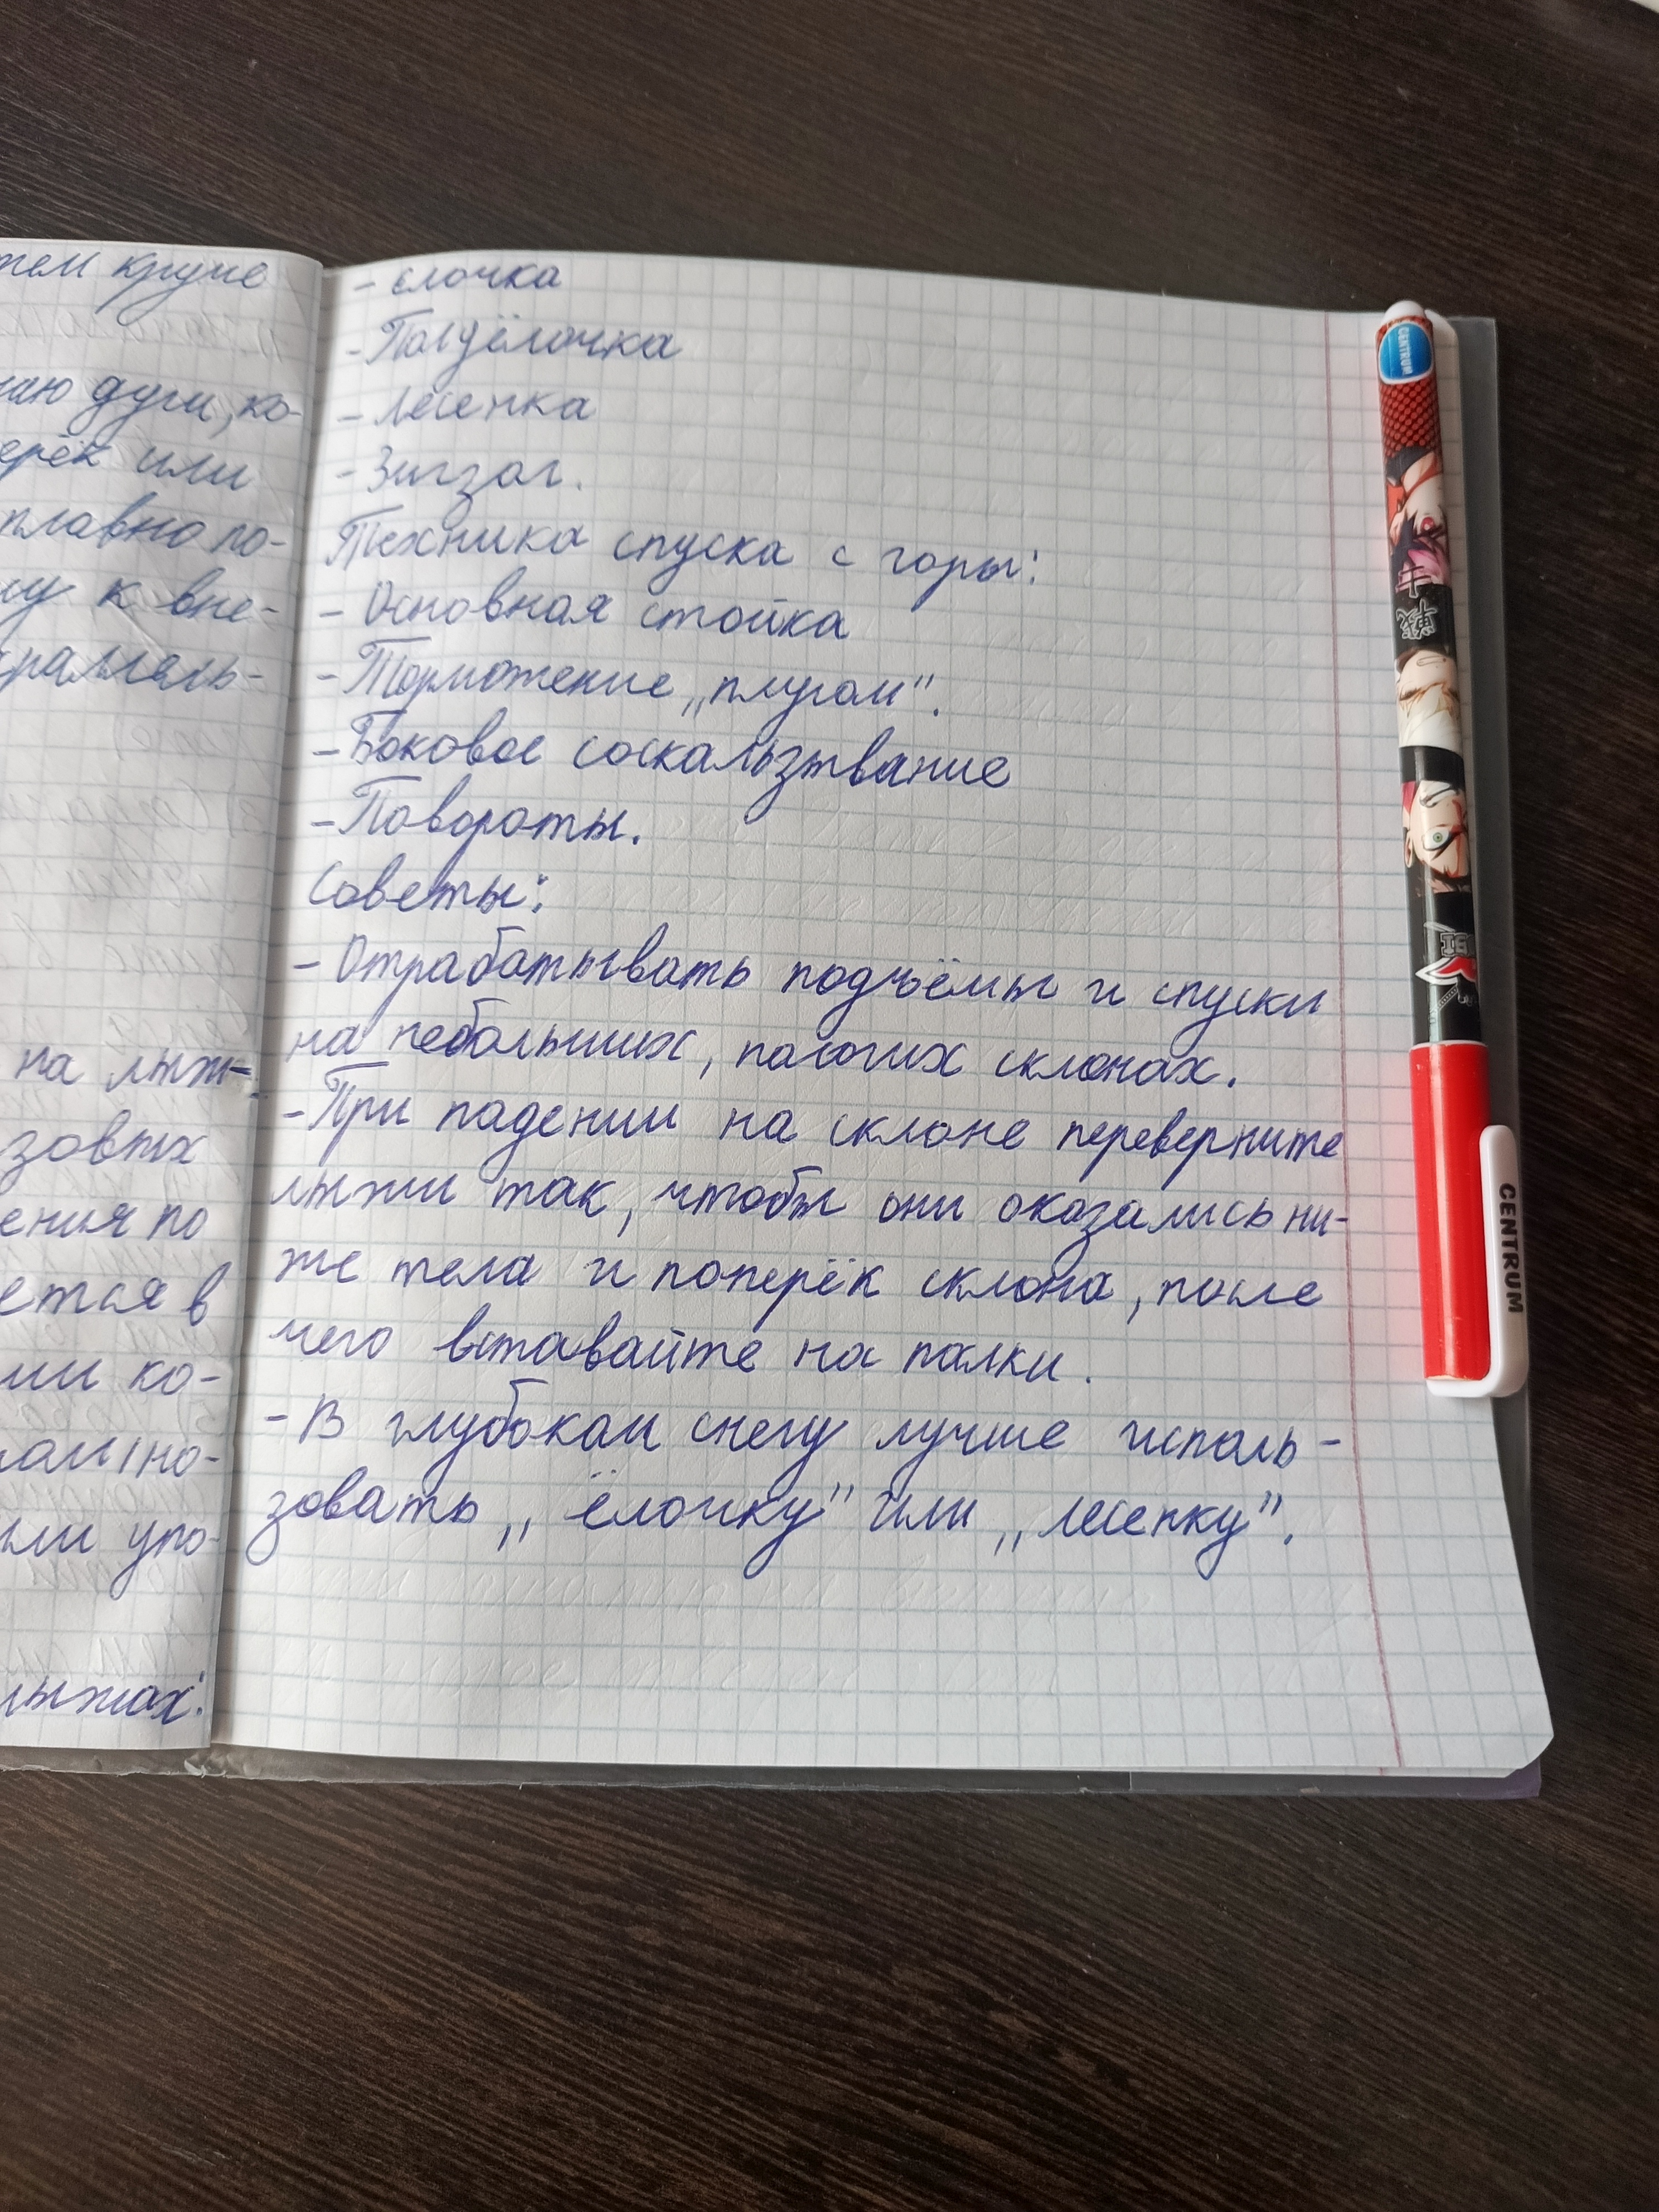 тем круче
дуги, ко-
ерёк или
плавно по-
у к вне-
раллель-
на лыж-
зовых
ения по
ется в
ми ко-
но-
или упо-
лыжах:
- ёлочка
- Полуёлочка
- Лесенка
- Зигзаг.
Техника спуска с горы:
- Основная стойка
- Торможение „плугом".
- Боковое соскальзывание
- Повороты.
Советы:
- Отрабатывать подъёмы и спуски
на небольших, пологих склонах.
- При падении на склоне переверните
лыжи так, чтобы они оказались ни-
же тела и поперёк склона, после
чего вставайте на палки.
- В глубоком снегу лучше исполь-
зовать „ёлочку" или „лесенку".
CENTRUM
CENTRUM